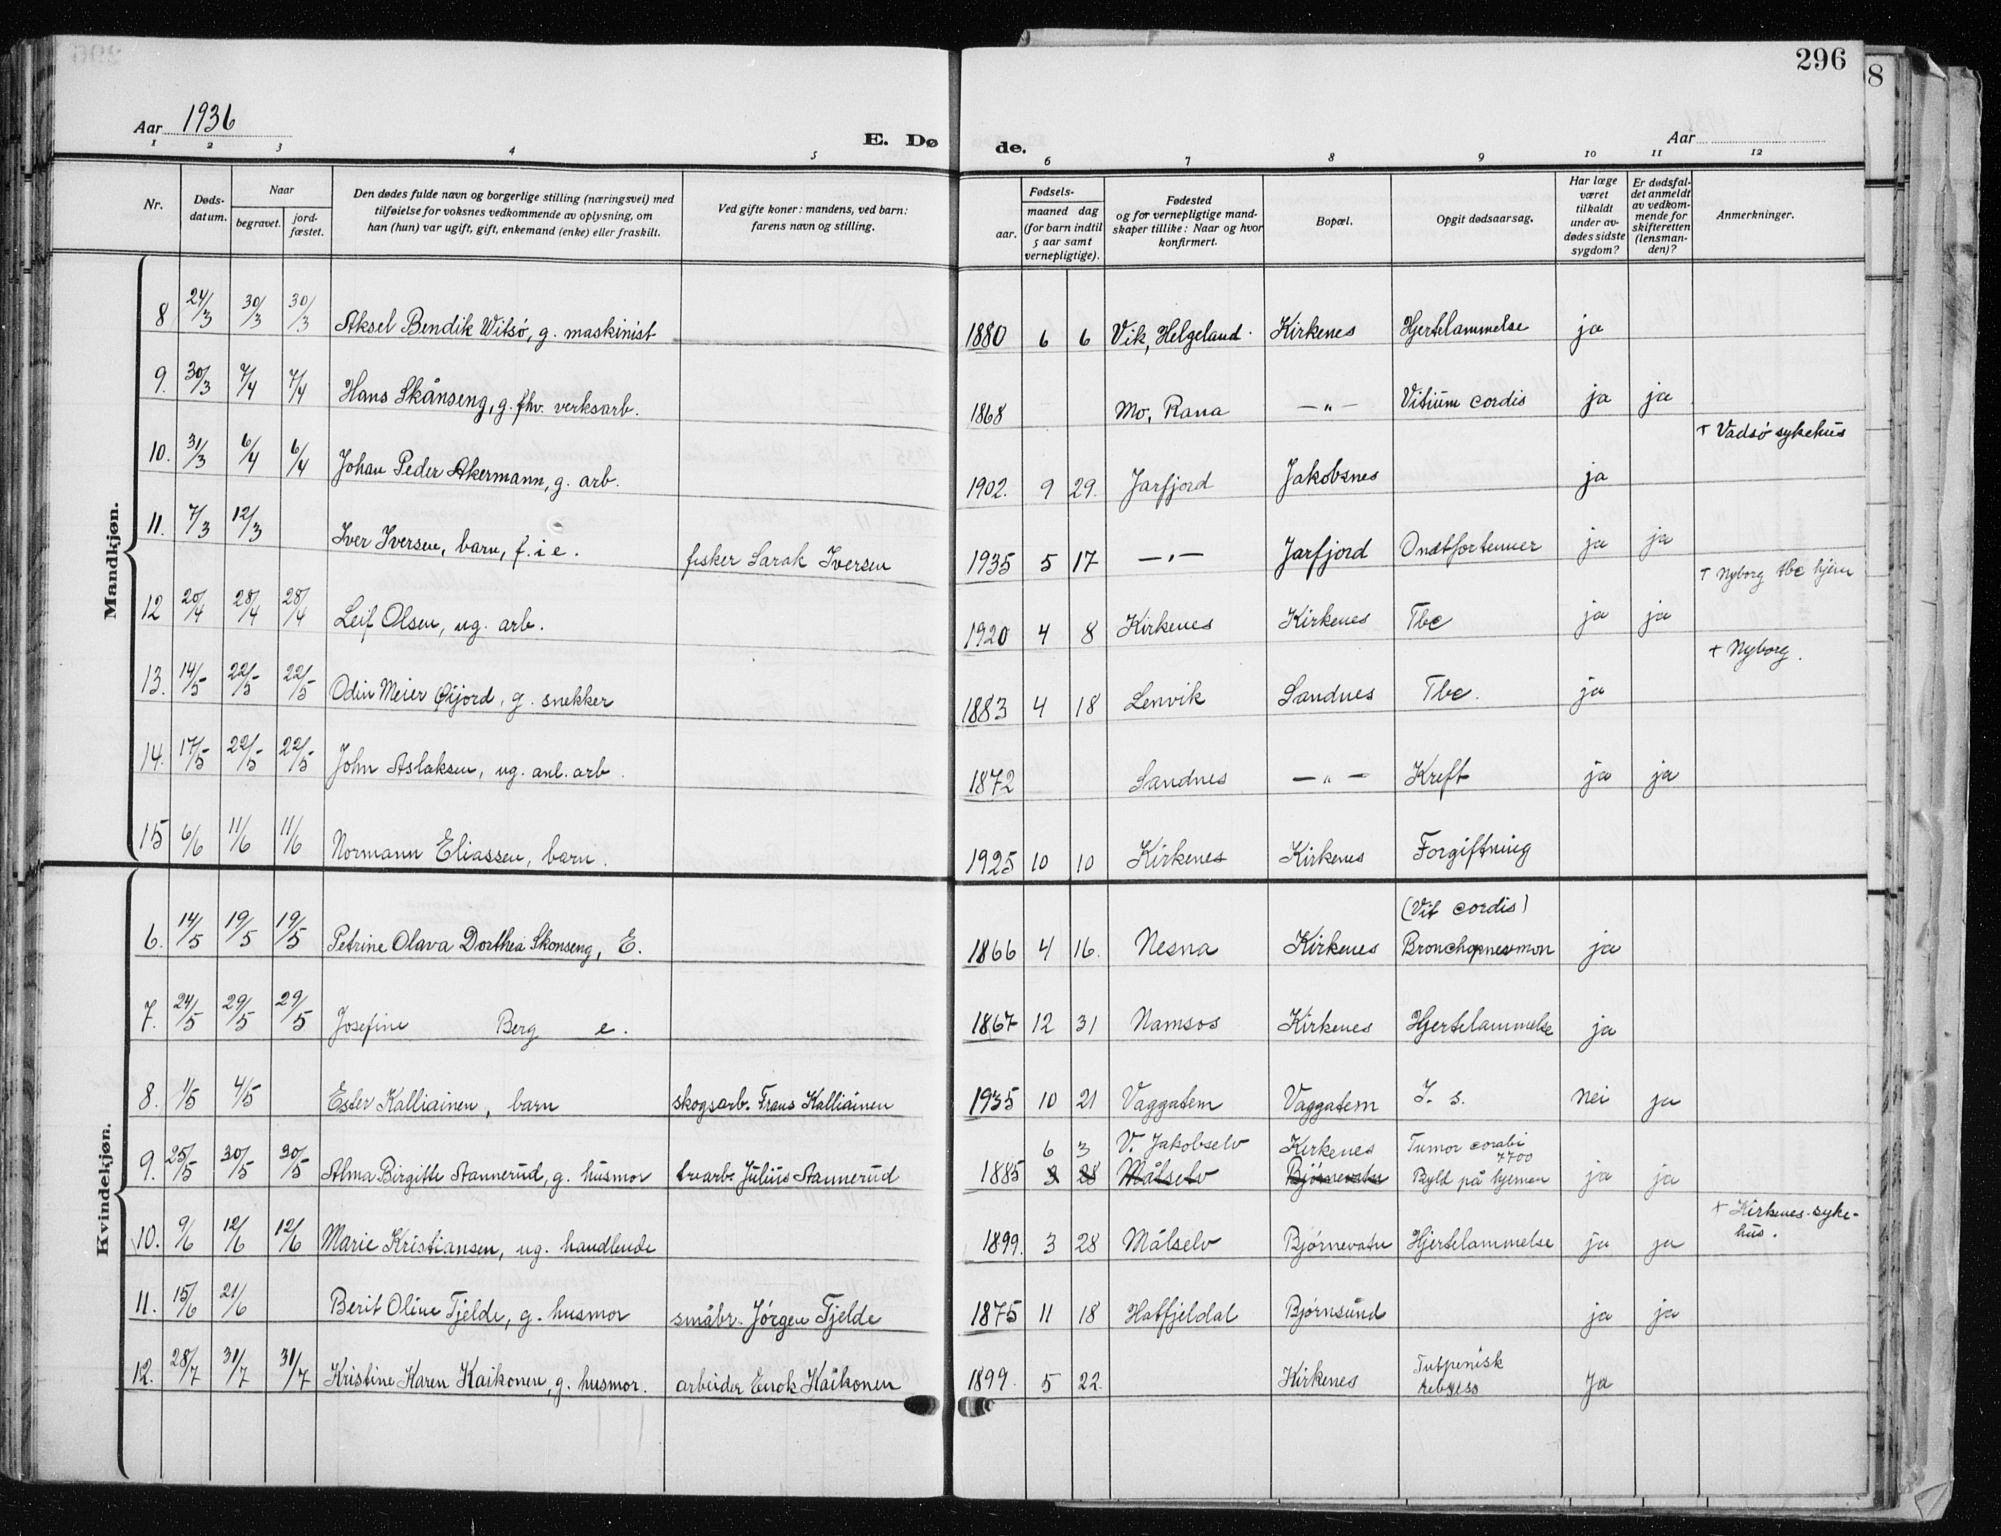 296
8
Aar 1936
E. Dø
de.
Aar
1 2 3 4 5
6 7 8 9 10 11 12
Nr.
Døds-
datum.
Naar
begravet.
jord-
fæstet.
Den dødes fulde navn og borgerlige stilling (næringsvei) med
tilføielse for voksnes vedkommende av oplysning, om
han (hun) var ugift, gift, enkemand (enke) eller fraskilt.
Ved gifte koner: mandens, ved barn:
farens navn og stilling.
Fødsels-
aar.
maaned dag
(for barn indtil
5 aar samt
vernepligtige).
Fødested
og for vernepligtige mand-
skaper tillike: Naar og hvor
konfirmert.
Bopæl.
Opgit dødsaarsag.
Har læge
været
tilkaldt
under av-
dødes sidste
sygdom?
Er dødsfal-
det anmeldt
av vedkom-
mende for
skifteretten
(lensman-
den)?
Anmerkninger.
Mandkjøn.
8 24/3 30/3 30/3 Aksel Bendik Witsø, g. maskinist 1880 6 6 Vik, Helgeland. Kirkenes Hjertelammelse ja
9. 30/3 7/4 7/4 Hans Skånseng, g. fhv. verksarb. 1868 Mo, Rana —"— Vitium cordis ja ja
10. 31/3 6/4 6/4 Johan Peder Akermann, g. arb. 1902. 9 29. Jarfjord Jakobsnes ja + Vadsø sykehus
11. 7/3 12/3 Iver Iversen, barn, f. i e. fisker Sarak Iversen 1935 5 17 —"— Jarfjord Ondtfortenner ja ja
12 20/4 28/4 28/4 Leif Olsen, ug. arb. 1920 4 8 Kirkenes Kirkenes Tbc ja ja + Nyborg tbc hjem
13. 14/5 22/5 22/5 Odin Meier Øijord, g. snekker 1883 4 18 Lenvik Sandnes Tbc. ja + Nyborg.
14. 17/5 22/5 22/5 John Aslaksen, ug. anl. arb. 1872 Sandnes —"— Kreft ja ja
15 6/6 11/6 11/6 Normann Eliassen, barn. 1925 10 10 Kirkenes Kirkenes Forgiftning
Kvindekjøn.
(Vit cordis)
6. 14/5 19/5 19/5 Petrine Olava Dorthea Skonseng, E. 1866 4 16. Nesna Kirkenes Bronchopneumon ja
7. 24/5 29/5 29/5 Josefine Berg e. 1867 12 31 Namsos Kirkenes Hjertelammelse ja
8. 1/5 4/5 Ester Kalliainen, barn skogsarb. Frans Kalliainen 1935 10 21 Vaggatem Vaggatem I. s. nei ja
6 3 V. Jakobselv Kirkenes Tumor
9. 25/5 30/5 30/5 Alma Birgitte Stannerud, g. husmor Julius Stannerud 1885 3 28 Målselv Bjørnevatn Byld på hjernen ja ja
10. 9/6 12/6 12/6 Marie Kristiansen, ug. handlende 1899. 3 28 Målselv Bjørnevatn Hjertelammelse ja ja + Kirkenes syke-
hus.
11. 15/6 21/6 Berit Oline Tjelde, g. husmor småbr. Jørgen Tjelde 1875 11 18 Hatfjeldal Bjørnsund ja ja
12. 28/7 31/7 31/7 Kristine Karen Kaikonen, g. husmor. arbeider Enok Kaikonen 1899. 5 22. Kirkenes Ja